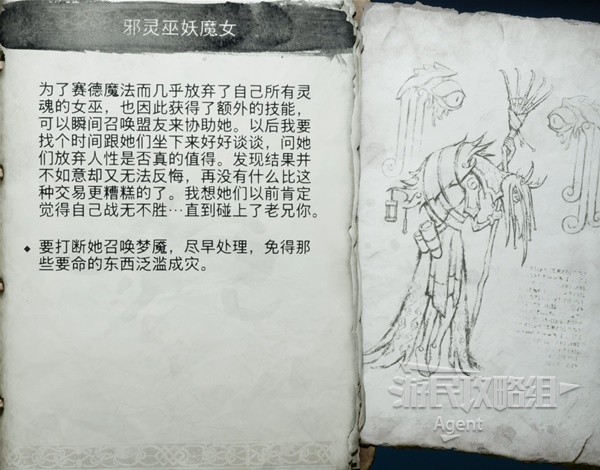 邪灵巫妖魔女
为了赛德魔法而几乎放弃了自己所有灵
魂的女巫，也因此获得了额外的技能，
可以瞬间召唤盟友来协助她。以后我要
找个时间跟她们坐下来好好谈谈，问她
们放弃人性是否真的值得。发现结果并
不如意却又无法反悔，再没有什么比这
种交易更糟糕的了。我想她们以前肯定
觉得自己战无不胜…直到碰上了老兄你。
◆ 要打断她召唤梦魇，尽早处理，免得那
些要命的东西泛滥成灾。
游民攻略组
Agent